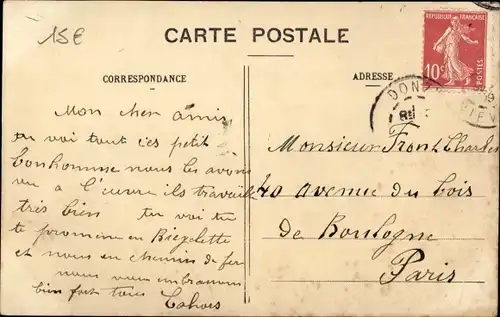 15€
CARTE POSTALE
RÉPUBLIQUE FRANÇAISE
10c POSTES
CORRESPONDANCE
ADRESSE
DON
Mon cher ami
tu voi tout ces petit
bonhomme nous les avons
vu a l'euvre ils travaille
très bien tu voi tu
te promène en Bicyclette
et nous en chemin de fer
nous vous embrassons
bien fort tous
Monsieur Front Charles
40 avenue du bois
de Boulogne
Paris